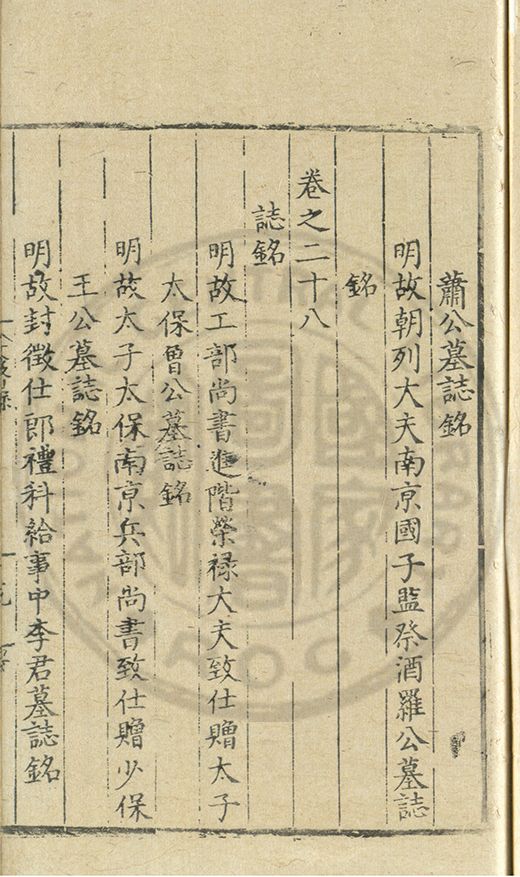 蕭公墓誌銘
明故朝列大夫南京國子監祭酒羅公墓誌
銘
卷之二十八
誌銘
明故工部尚書進階榮祿大夫致仕贈太子
太保曾公墓誌銘
明故太子太保南京兵部尚書致仕贈少保
王公墓誌銘
明故封徵仕郎禮科給事中李君墓誌銘